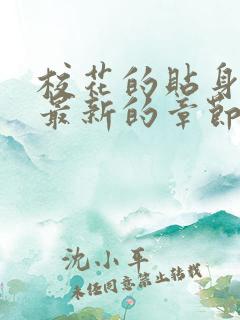 校花的貼身
最新的章節
沈小平
未经同意禁止转载